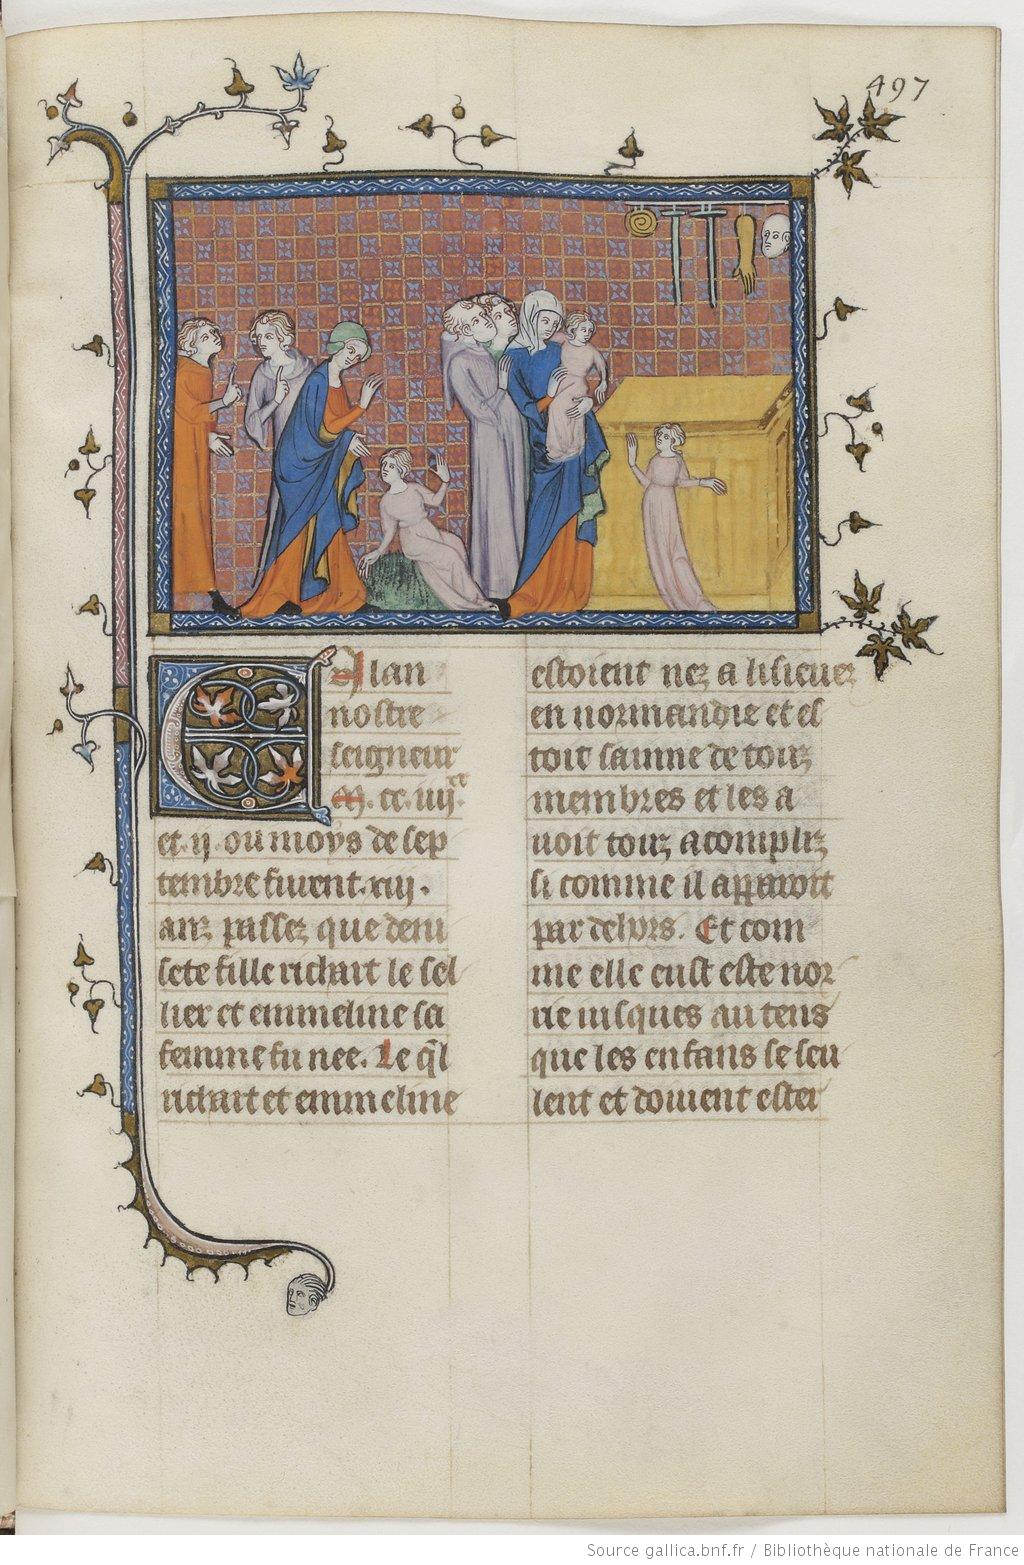 497
E l an
nostre
seigneur
M. cc. iiij.xx
et. ij. ou moys de sep
tembre furent. xiij.
anz passez que deni
sete fille richart le sel
lier et emmeline sa
femme fu nee. Le q̃l
richart et emmeline
estoient nez a lisieuer
en normandie et es
toit sainne de touz
membres et les a
uoit touz acompliz
si comme il apparoit
par dehors. Et com
me elle eust este nor
rie iusques au tens
que les enfans se seu
lent et doiuent ester
Source gallica.bnf.fr / Bibliothèque nationale de France